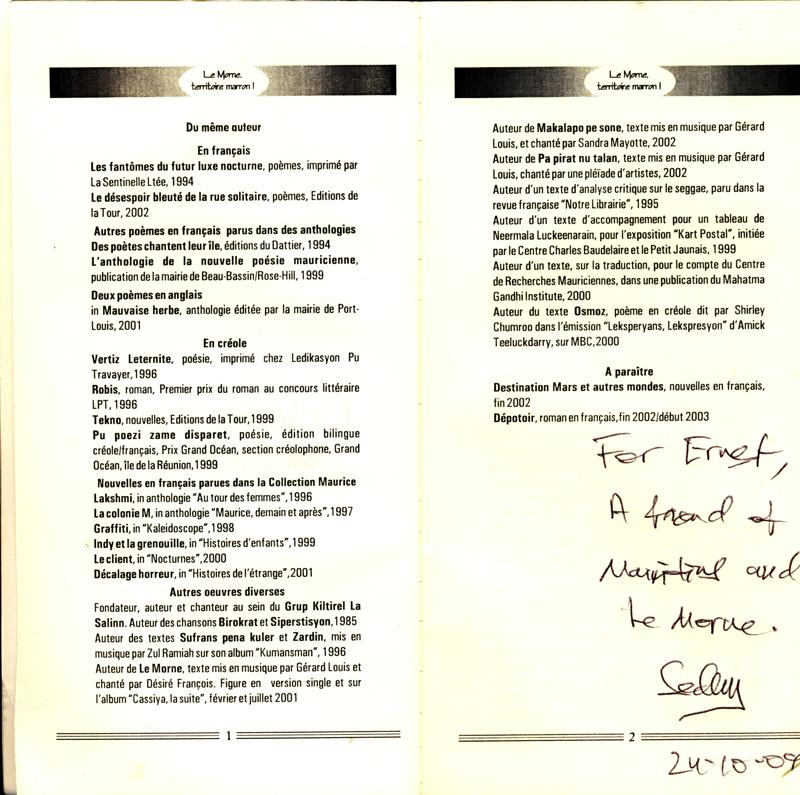 Le Morne,
territoire marron !
Du même auteur
En français
Les fantômes du futur luxe nocturne, poèmes, imprimé par
La Sentinelle Ltée, 1994
Le désespoir bleuté de la rue solitaire, poèmes, Editions de
la Tour, 2002
Autres poèmes en français parus dans des anthologies
Des poètes chantent leur île, éditions du Dattier, 1994
L'anthologie de la nouvelle poésie mauricienne,
publication de la mairie de Beau-Bassin/Rose-Hill, 1999
Deux poèmes en anglais
in Mauvaise herbe, anthologie éditée par la mairie de Port-
Louis, 2001
En créole
Vertiz Leternite, poésie, imprimé chez Ledikasyon Pu
Travayer,1996
Robis, roman, Premier prix du roman au concours littéraire
LPT, 1996
Tekno, nouvelles, Editions de la Tour,1999
Pu poezi zame disparet, poésie, édition bilingue
créole/français, Prix Grand Océan, section créolophone, Grand
Océan, île de la Réunion,1999
Nouvelles en français parues dans la Collection Maurice
Lakshmi, in anthologie "Au tour des femmes",1996
La colonie M, in anthologie "Maurice, demain et après",1997
Graffiti, in "Kaleidoscope",1998
Indy et la grenouille, in "Histoires d'enfants",1999
Le client, in "Nocturnes",2000
Décalage horreur, in "Histoires de l'étrange",2001
Autres oeuvres diverses
Fondateur, auteur et chanteur au sein du Grup Kiltirel La
Salinn. Auteur des chansons Birokrat et Siperstisyon,1985
Auteur des textes Sufrans pena kuler et Zardin, mis en
musique par Zul Ramiah sur son album "Kumansman", 1996
Auteur de Le Morne, texte mis en musique par Gérard Louis et
chanté par Désiré François. Figure en version single et sur
l'album "Cassiya, la suite", février et juillet 2001
1
Le Morne,
territoire marron !
Auteur de Makalapo pe sone, texte mis en musique par Gérard
Louis, et chanté par Sandra Mayotte, 2002
Auteur de Pa pirat nu talan, texte mis en musique par Gérard
Louis, chanté par une pléïade d'artistes, 2002
Auteur d'un texte d'analyse critique sur le seggae, paru dans la
revue française "Notre Librairie", 1995
Auteur d'un texte d'accompagnement pour un tableau de
Neermala Luckeenarain, pour l'exposition "Kart Postal", initiée
par le Centre Charles Baudelaire et le Petit Jaunais, 1999
Auteur d'un texte, sur la traduction, pour le compte du Centre
de Recherches Mauriciennes, dans une publication du Mahatma
Gandhi Institute, 2000
Auteur du texte Osmoz, poème en créole dit par Shirley
Chumroo dans l'émission "Leksperyans, Lekspresyon" d'Amick
Teeluckdarry, sur MBC,2000
A paraître
Destination Mars et autres mondes, nouvelles en français,
fin 2002
Dépotoir, roman en français,fin 2002/début 2003
For Ernest,
A friend of
Mauritius and
Le Morne.
2
24-10-09